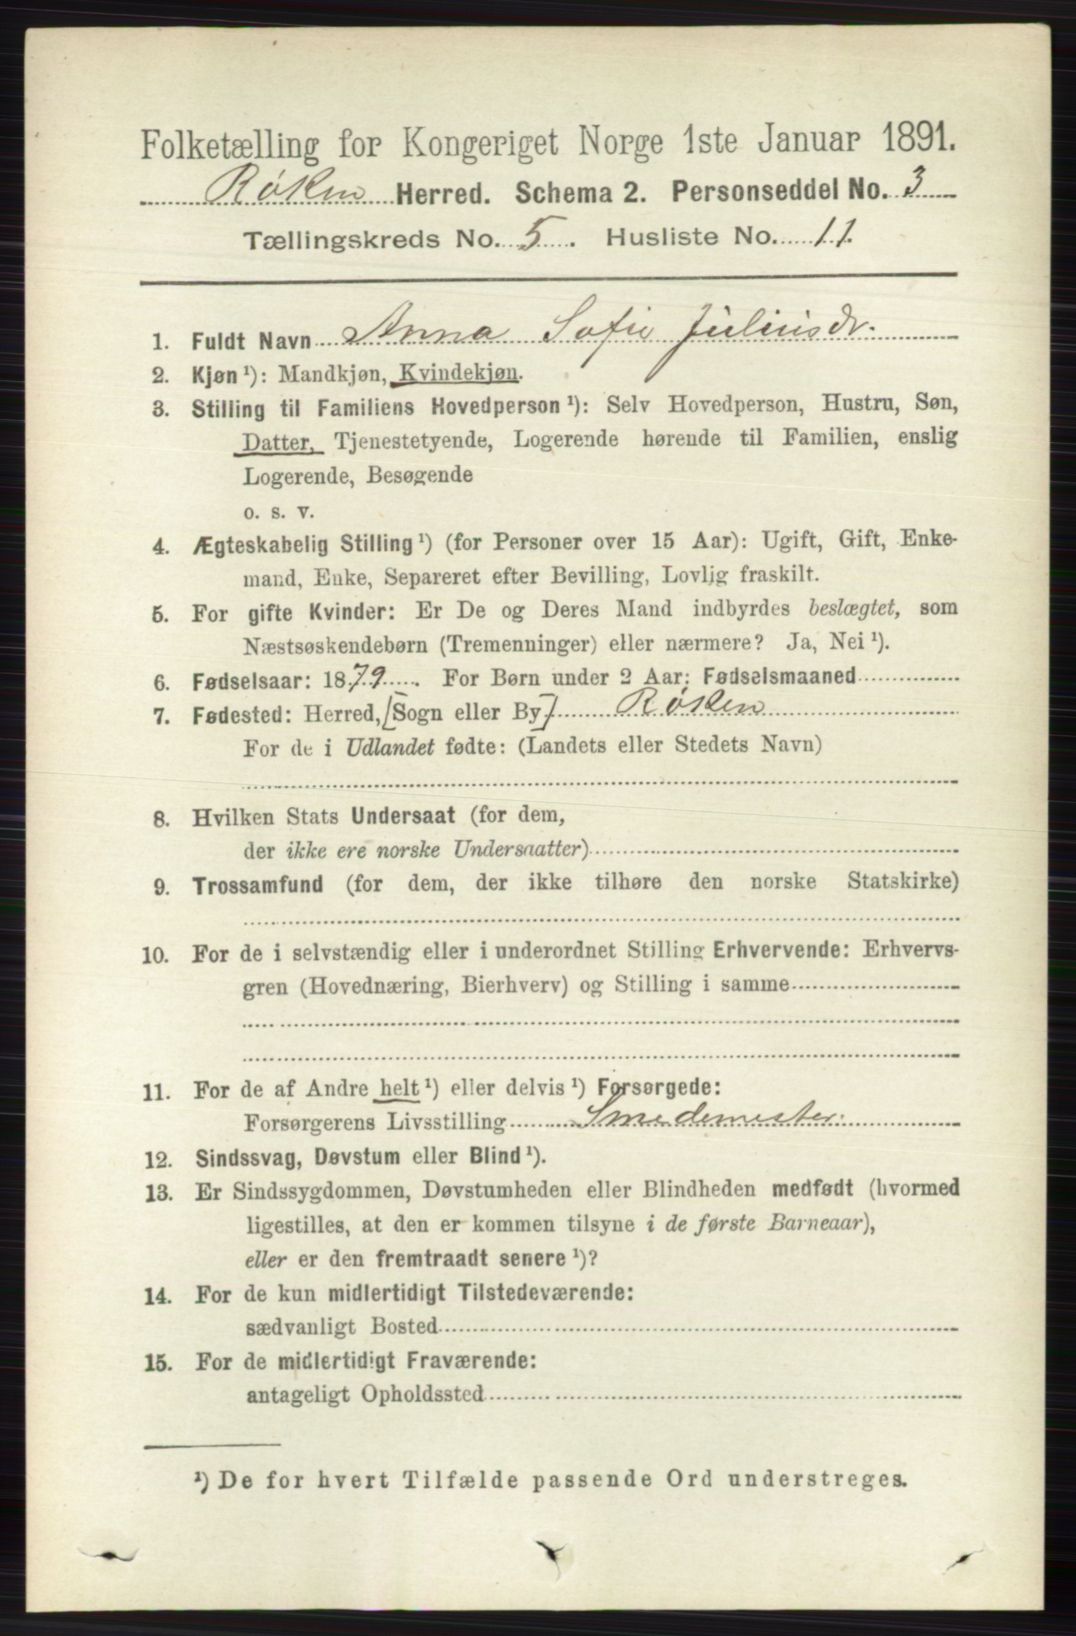 Folketælling for Kongeriget Norge 1ste Januar 1891.
Røken Herred. Schema 2. Personseddel No. 3
Tællingskreds No. 5. Husliste No. 11.
1. Fuldt Navn Anna Sofie Juliusdr.
2. Kjøn ¹): Mandkjøn, Kvindekjøn.
3. Stilling til Familiens Hovedperson ¹): Selv Hovedperson, Hustru, Søn,
Datter, Tjenestetyende, Logerende hørende til Familien, enslig
Logerende, Besøgende
o. s. v.
4. Ægteskabelig Stilling ¹) (for Personer over 15 Aar): Ugift, Gift, Enke-
mand, Enke, Separeret efter Bevilling, Lovlig fraskilt.
5. For gifte Kvinder: Er De og Deres Mand indbyrdes beslægtet, som
Næstsøskendebørn (Tremenninger) eller nærmere? Ja, Nei ¹).
6. Fødselsaar: 1879. For Børn under 2 Aar: Fødselsmaaned
7. Fødested: Herred, [Sogn eller By] Røken
For de i Udlandet fødte: (Landets eller Stedets Navn)
8. Hvilken Stats Undersaat (for dem,
der ikke ere norske Undersaatter)
9. Trossamfund (for dem, der ikke tilhøre den norske Statskirke)
10. For de i selvstændig eller i underordnet Stilling Erhvervende: Erhvervs-
gren (Hovednæring, Bierhverv) og Stilling i samme
11. For de af Andre helt ¹) eller delvis ¹) Forsørgede:
Forsørgerens Livsstilling Smedemester.
12. Sindssvag, Døvstum eller Blind ¹).
13. Er Sindssygdommen, Døvstumheden eller Blindheden medfødt (hvormed
ligestilles, at den er kommen tilsyne i de første Barneaar),
eller er den fremtraadt senere ¹)?
14. For de kun midlertidigt Tilstedeværende:
sædvanligt Bosted
15. For de midlertidigt Fraværende:
antageligt Opholdssted
¹) De for hvert Tilfælde passende Ord understreges.